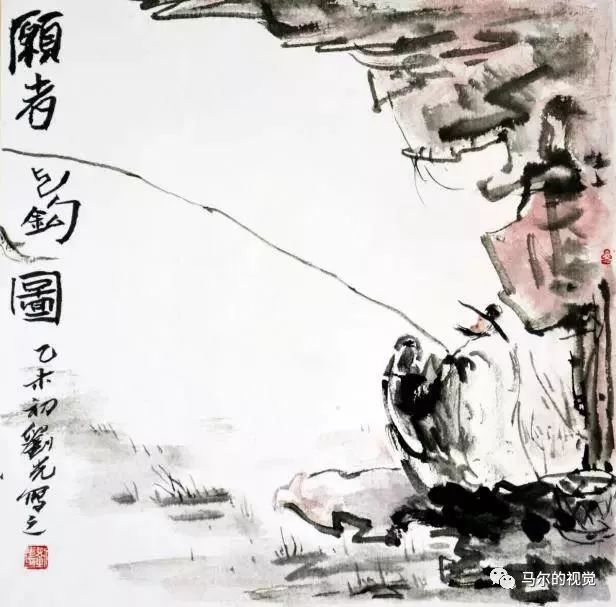 願者上鈎圖
乙未初劉光寫之
马尔的视觉